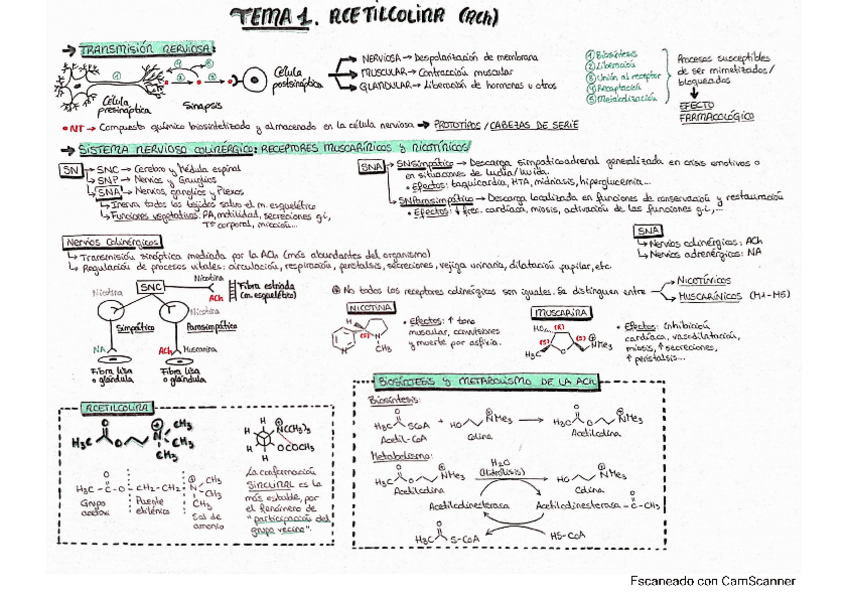 TEMA 1. ACETILCOLINA (ACh)
→ TRANSMISIÓN NERVIOSA:
Célula presináptica
Sinapsis
Célula postsináptica
NERVIOSA → Despolarización de membrana
MUSCULAR → Contracción muscular
GLANDULAR → Liberación de hormonas u otros
① Biosíntesis
② Liberación
③ Unión al receptor
④ Recaptación
⑤ Metabolización
Procesos susceptibles
de ser mimetizados/
bloqueados
↓
EFECTO
FARMACOLÓGICO
• NT → Compuesto químico biosintetizado y almacenado en la célula nerviosa → PROTOTIPOS / CABEZAS DE SERIE
→ SISTEMA NERVIOSO COLINÉRGICO: RECEPTORES MUSCARÍNICOS Y NICOTÍNICOS
SN
SNC → Cerebro y Médula espinal
SNP → Nervios y Ganglios
SNA → Nervios, ganglios y Plexos
Inerva todos los tejidos salvo el m. esquelético
Funciones vegetativas: PA, motilidad, secreciones g.i,
Tº corporal, micción...
SNA
SNSimpático → Descarga simpaticoadrenal generalizada en crisis emotivas o
en situaciones de lucha/huida.
• Efectos: taquicardia, HTA, midriasis, hiperglucemia...
SNParasimpático → Descarga localizada en funciones de conservación y restauración
• Efectos: ↓ frec. cardíaca, miosis, activación de las funciones g.i,...
Nervios Colinérgicos
Transmisión sináptica mediada por la ACh (más abundantes del organismo)
Regulación de procesos vitales: circulación, respiración, peristalsis, secreciones, vejiga urinaria, dilatación pupilar, etc.
SNA
Nervios colinérgicos: ACh
Nervios adrenérgicos: NA
SNC
Nicotina
ACh
Fibra estriada
(m. esquelético)
Nicotina
Nicotina
Simpático
Parasimpático
NA
ACh
Muscarina
Fibra lisa
o glándula
Fibra lisa
o glándula
No todos los receptores colinérgicos son iguales. Se distinguen entre
NICOTÍNICOS
MUSCARÍNICOS (M1-M5)
NICOTINA
N
(S)
N
CH3
• Efectos: ↑ tono
muscular, convulsiones
y muerte por asfixia.
MUSCARINA
HO (R)
(S)
(S)
H3C
O
NMe3
• Efectos: inhibición
cardíaca, vasodilatación,
miosis, ↑ secreciones,
↑ peristalsis...
ACETILCOLINA
H3C O O N CH3 CH3 CH3
H3C – C – O – CH2 – CH2 – N CH3 CH3 CH3
Grupo
acetoxi
Puente
etilénico
Sal de
amonio
H N(CH3)3
H H
H OCOCH3
La conformación
SINCLINAL es la
más estable, por
el fenómeno de
"participación del
grupo vecino".
BIOSÍNTESIS Y METABOLISMO DE LA ACh
Biosíntesis:
H3C O SCoA + HO NMe3 → H3C O O NMe3
Acetil-CoA
Colina
Acetilcolina
Metabolismo:
H3C O O NMe3
H2O
(Hidrólisis)
HO NMe3
Acetilcolina
Colina
Acetilcolinesterasa
Acetilcolinesterasa – C – CH3
O
H3C O S-CoA
HS-CoA
Escaneado con CamScanner